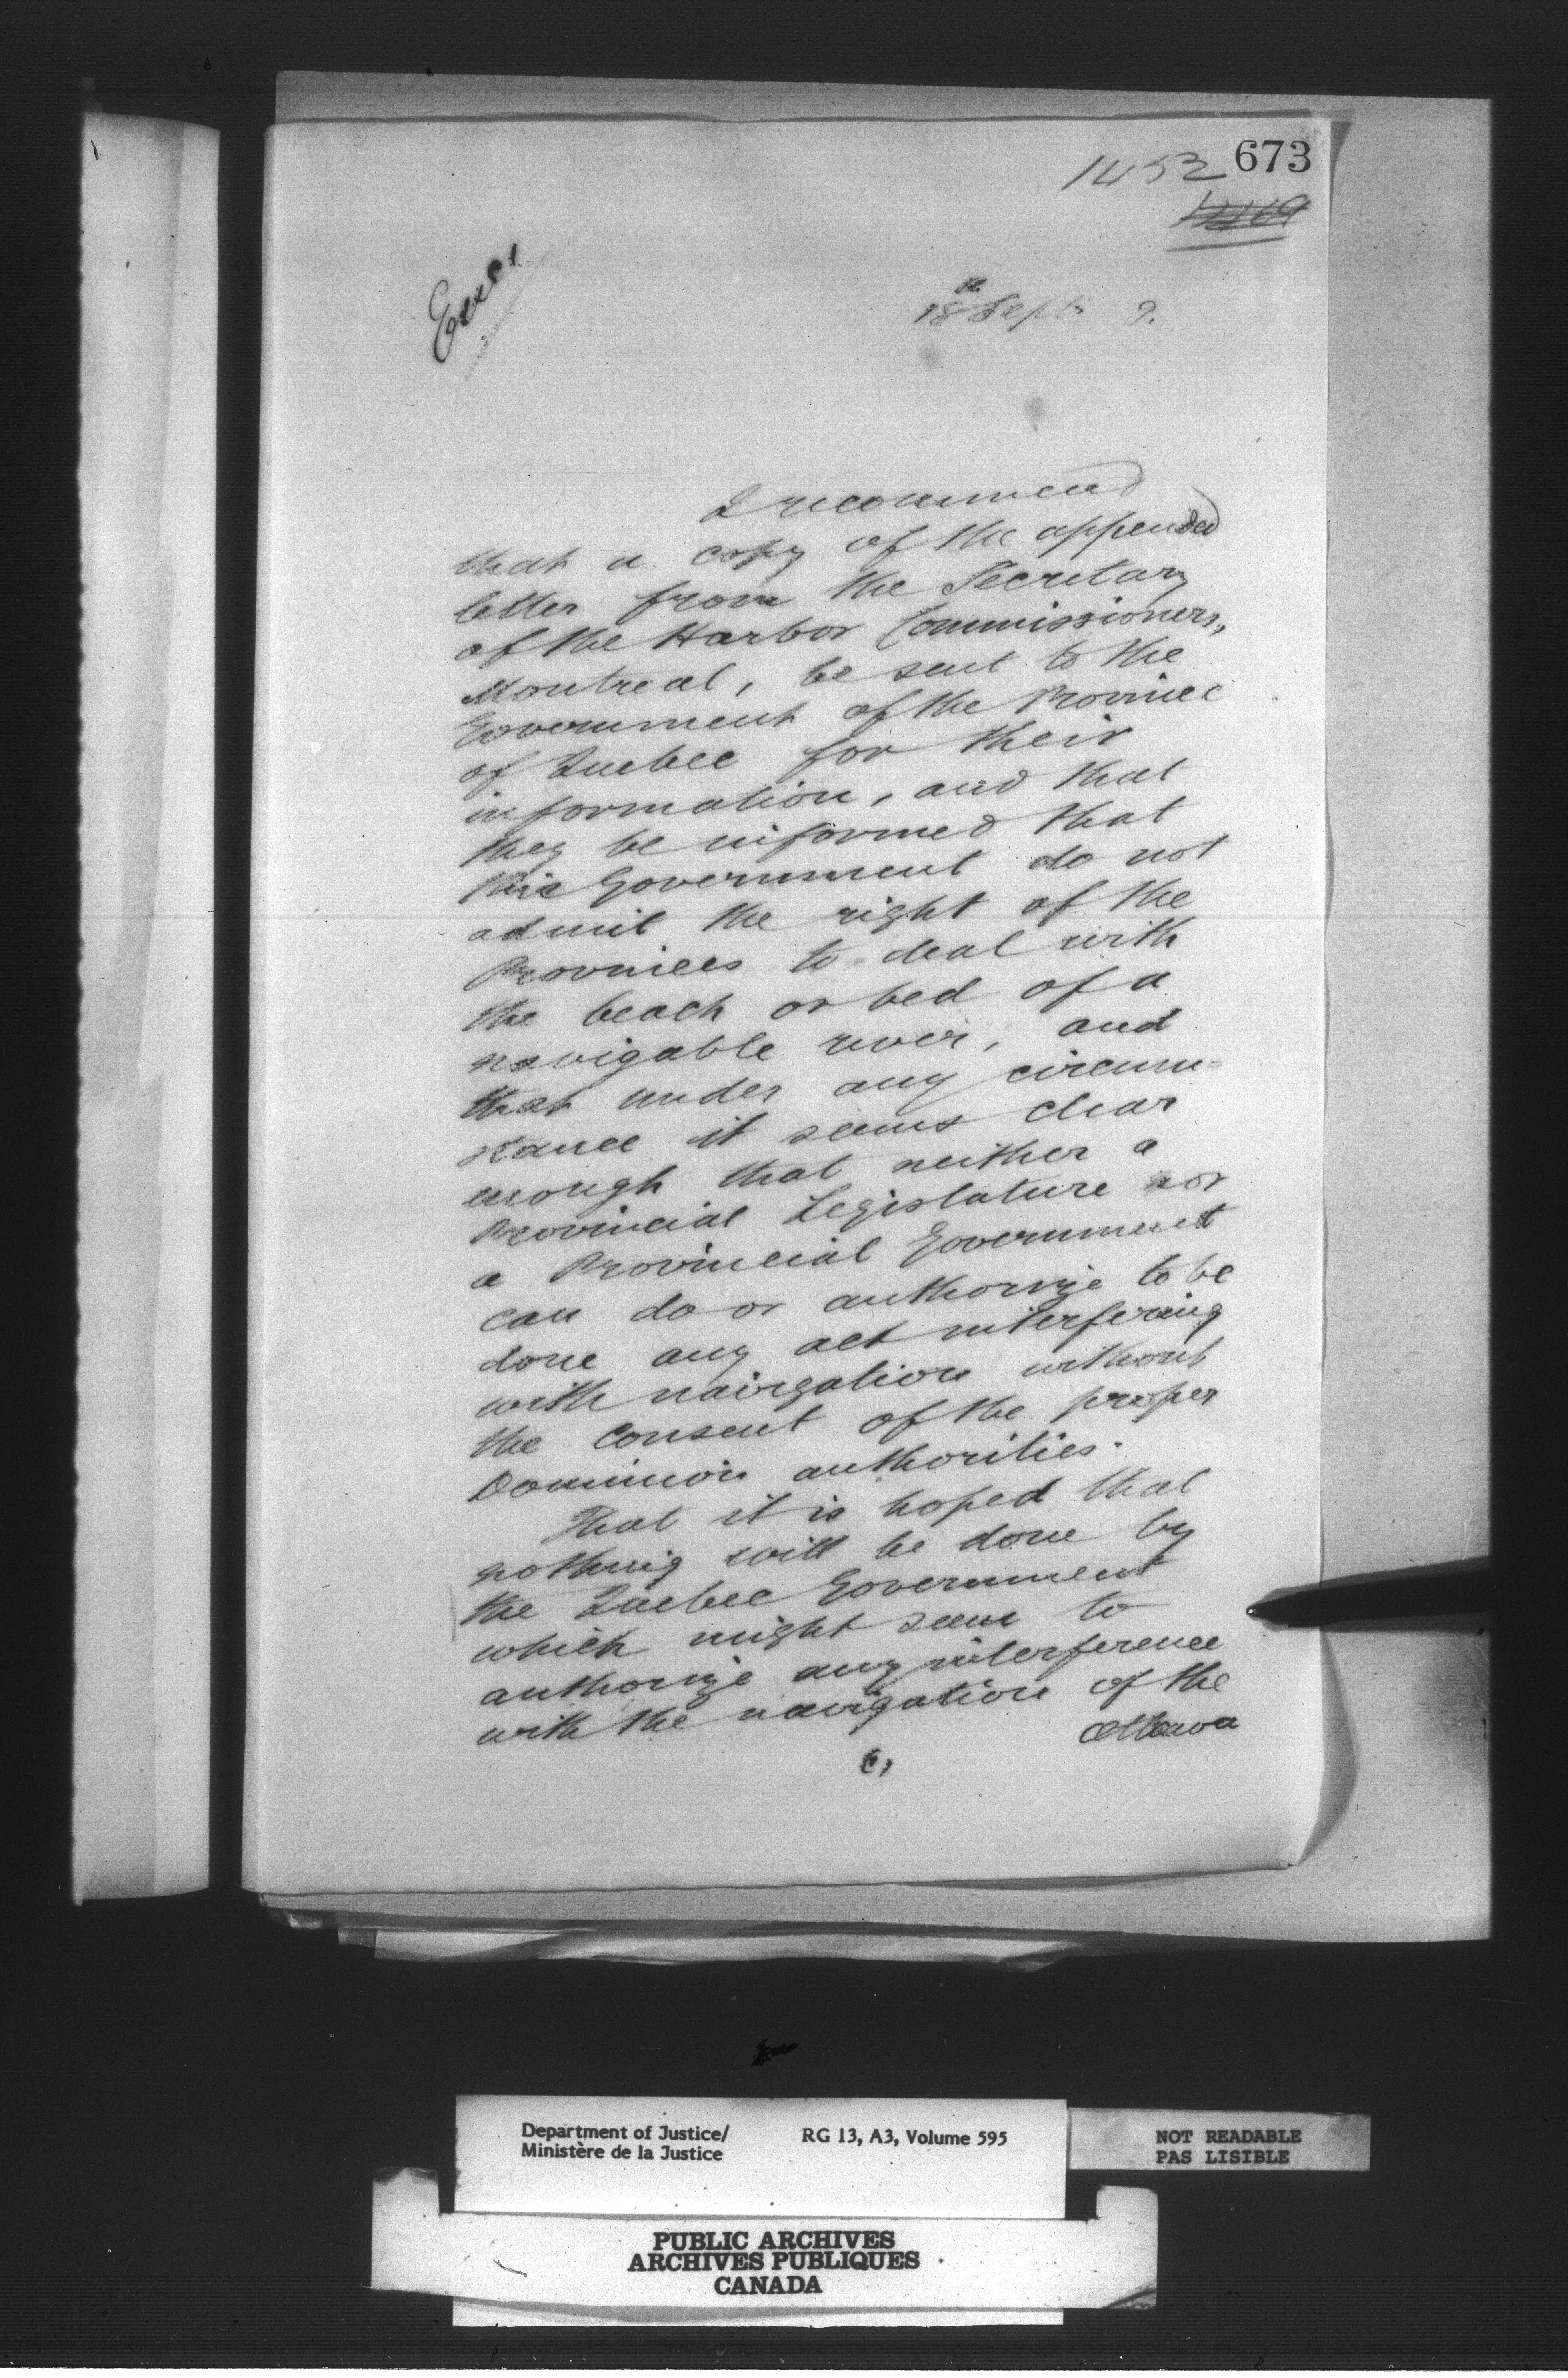 673
1453
Encl
18th Sept. 9.
I recommend
that a copy of the appended
letter from the Secretary
of the Harbor Commissioners,
Montreal, be sent to the
Government of the Province
of Quebec for their
information, and that
they be informed that
this Government do not
admit the right of the
Provinces to deal with
the beach or bed of a
navigable river, and
that under any circum=
stance it seems clear
enough that neither a
Provincial Legislature nor
a Provincial Government
can do or authorize to be
done any act interfering
with navigation without
the consent of the proper
Dominion authorities.
That it is hoped that
nothing will be done by
the Quebec Government
which might seem to
authorize any interference
with the navigation of the
Ottawa
Department of Justice/
Ministère de la Justice
RG 13, A3, Volume 595
NOT READABLE
PAS LISIBLE
PUBLIC ARCHIVES
ARCHIVES PUBLIQUES
CANADA